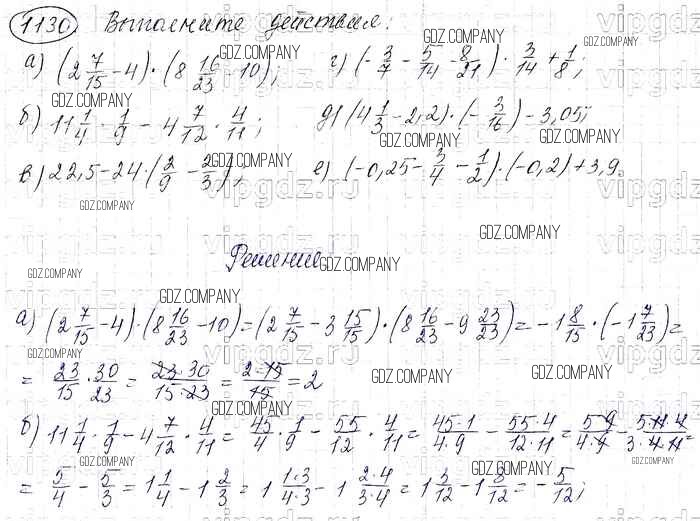 1130 Выполните действия:
а) (2 7/15 − 4) · (8 16/23 − 10); г) (−3/7 − 5/14 − 8/21) · 3/14 + 1/8;
б) 11 1/4 · 1/9 − 4 7/12 · 4/11; д) (4 1/3 − 2,2) · (−3/16) − 3,05;
в) 22,5 − 24 · (2/9 − 2/3); е) (−0,25 − 3/4 − 1/2) · (−0,2) + 3,9.
Решение
а) (2 7/15 − 4) · (8 16/23 − 10) = (2 7/15 − 3 15/15) · (8 16/23 − 9 23/23) = −1 8/15 · (−1 7/23) =
= 23/15 · 30/23 = 23·30/15·23 = 2·15/15 = 2
б) 11 1/4 · 1/9 − 4 7/12 · 4/11 = 45/4 · 1/9 − 55/12 · 4/11 = 45·1/4·9 − 55·4/12·11 = 5·9/4·9 − 5·11·4/3·4·11 =
= 5/4 − 5/3 = 1 1/4 − 1 2/3 = 1 1·3/4·3 − 1 2·4/3·4 = 1 3/12 − 1 8/12 = −5/12;
GDZ.COMPANY
vipgdz.ru